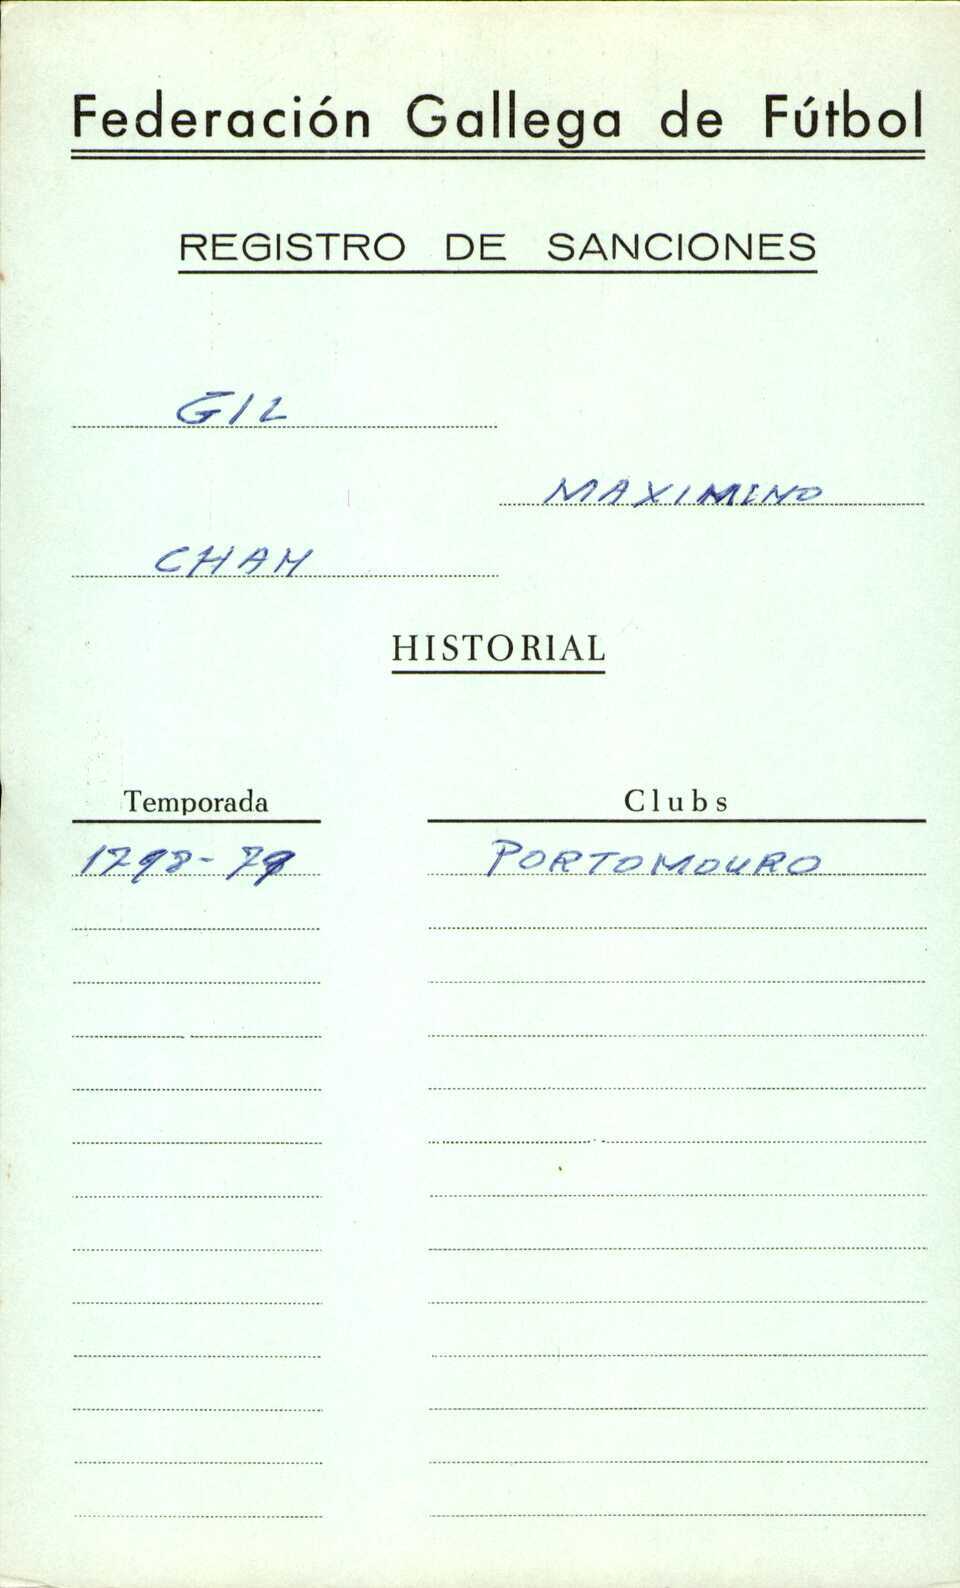 Federación Gallega de Fútbol
REGISTRO DE SANCIONES
GIL
MAXIMINO
CHAM
HISTORIAL
Temporada Clubs
1798-79 PORTOMOURO